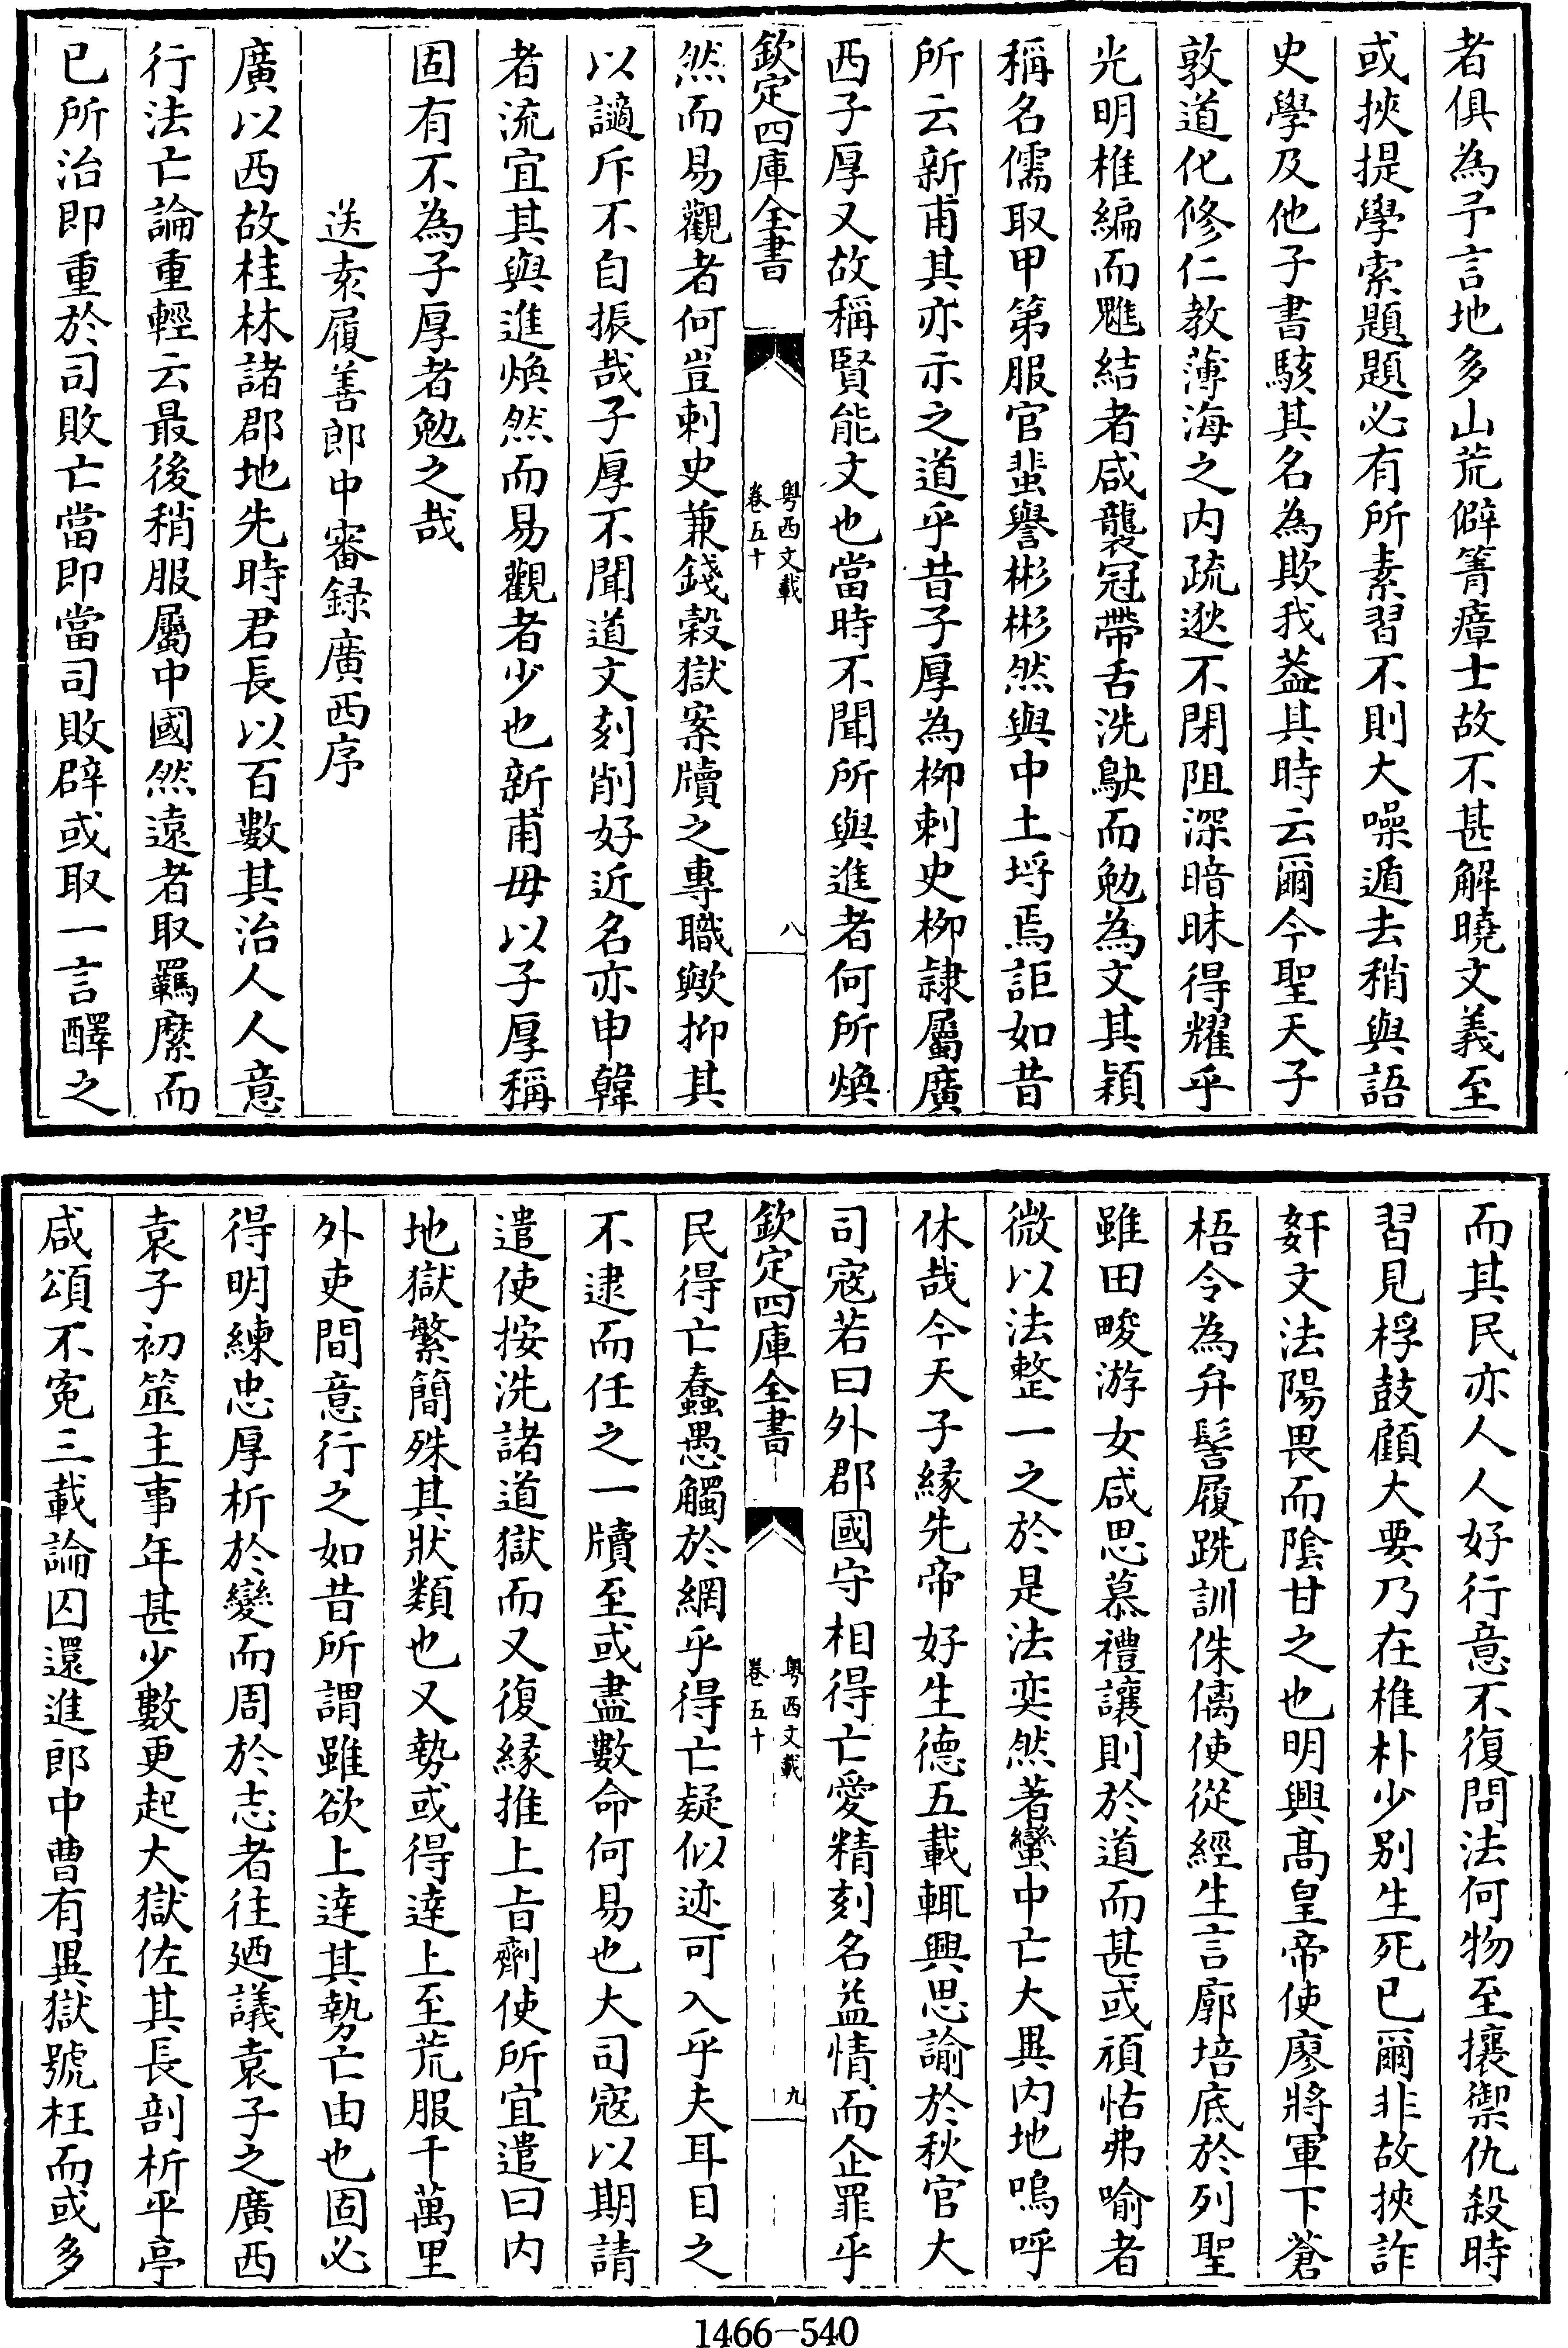 者俱為予言地多山荒僻箐瘴士故不甚解曉文義至
或挾提學索題題必有所素習不則大噪遁去稍與語
史學及他子書駭其名為欺我葢其時云爾今聖天子
敦道化修仁教薄海之内疏逖不閉阻深暗昧得耀乎
光明椎編而魋結者咸襲冠帶舌洗鴃而勉為文其穎
稱名儒取甲第服官蜚譽彬彬然與中土埒焉詎如昔
所云新甫其亦示之道乎昔子厚為柳刺史柳隷屬廣
西子厚又故稱賢能文也當時不聞所與進者何所煥
欽定四庫全書
粤西文載
卷五十
八
然而易觀者何豈刺史兼錢穀獄案牘之專職歟抑其
以謫斥不自振哉子厚不聞道文刻削好近名亦申韓
者流宜其與進煥然而易觀者少也新甫毋以子厚稱
固有不為子厚者勉之哉
送袁履善郎中審録廣西序
廣以西故桂林諸郡地先時君長以百數其治人人意
行法亡論重輕云最後稍服屬中國然遠者取羈縻而
已所治即重於司敗亡當即當司敗辟或取一言醳之
而其民亦人人好行意不復問法何物至攘禦仇殺時
習見桴鼓顧大要乃在椎朴少别生死已爾非故挾詐
奸文法陽畏而隂甘之也明興髙皇帝使廖將軍下蒼
梧令為弁髻履跣訓侏𠌯使從經生言廓培底於列聖
雖田畯游女咸思慕禮讓則於道而甚或頑怙弗喻者
微以法整一之於是法奕然著蠻中亡大異内地嗚呼
休哉今天子縁先帝好生德五載輒興思諭於秋官大
司宼若曰外郡國守相得亡愛精刻名益情而企罪乎
欽定四庫全書
粤西文載
卷五十
九
民得亡蠢愚觸於網乎得亡疑似迹可入乎夫耳目之
不逮而任之一牘至或盡數命何易也大司宼以期請
遣使按洗諸道獄而又復縁推上㫖劑使所宜遣曰内
地獄繁簡殊其狀類也又勢或得逹上至荒服千萬里
外吏間意行之如昔所謂雖欲上逹其埶亡由也固必
得明練忠厚析於變而周於志者往廼議袁子之廣西
袁子初筮主事年甚少數更起大獄佐其長剖析平亭
咸頌不寃三載論囚還進郎中曹有異獄號枉而或多
1466-540